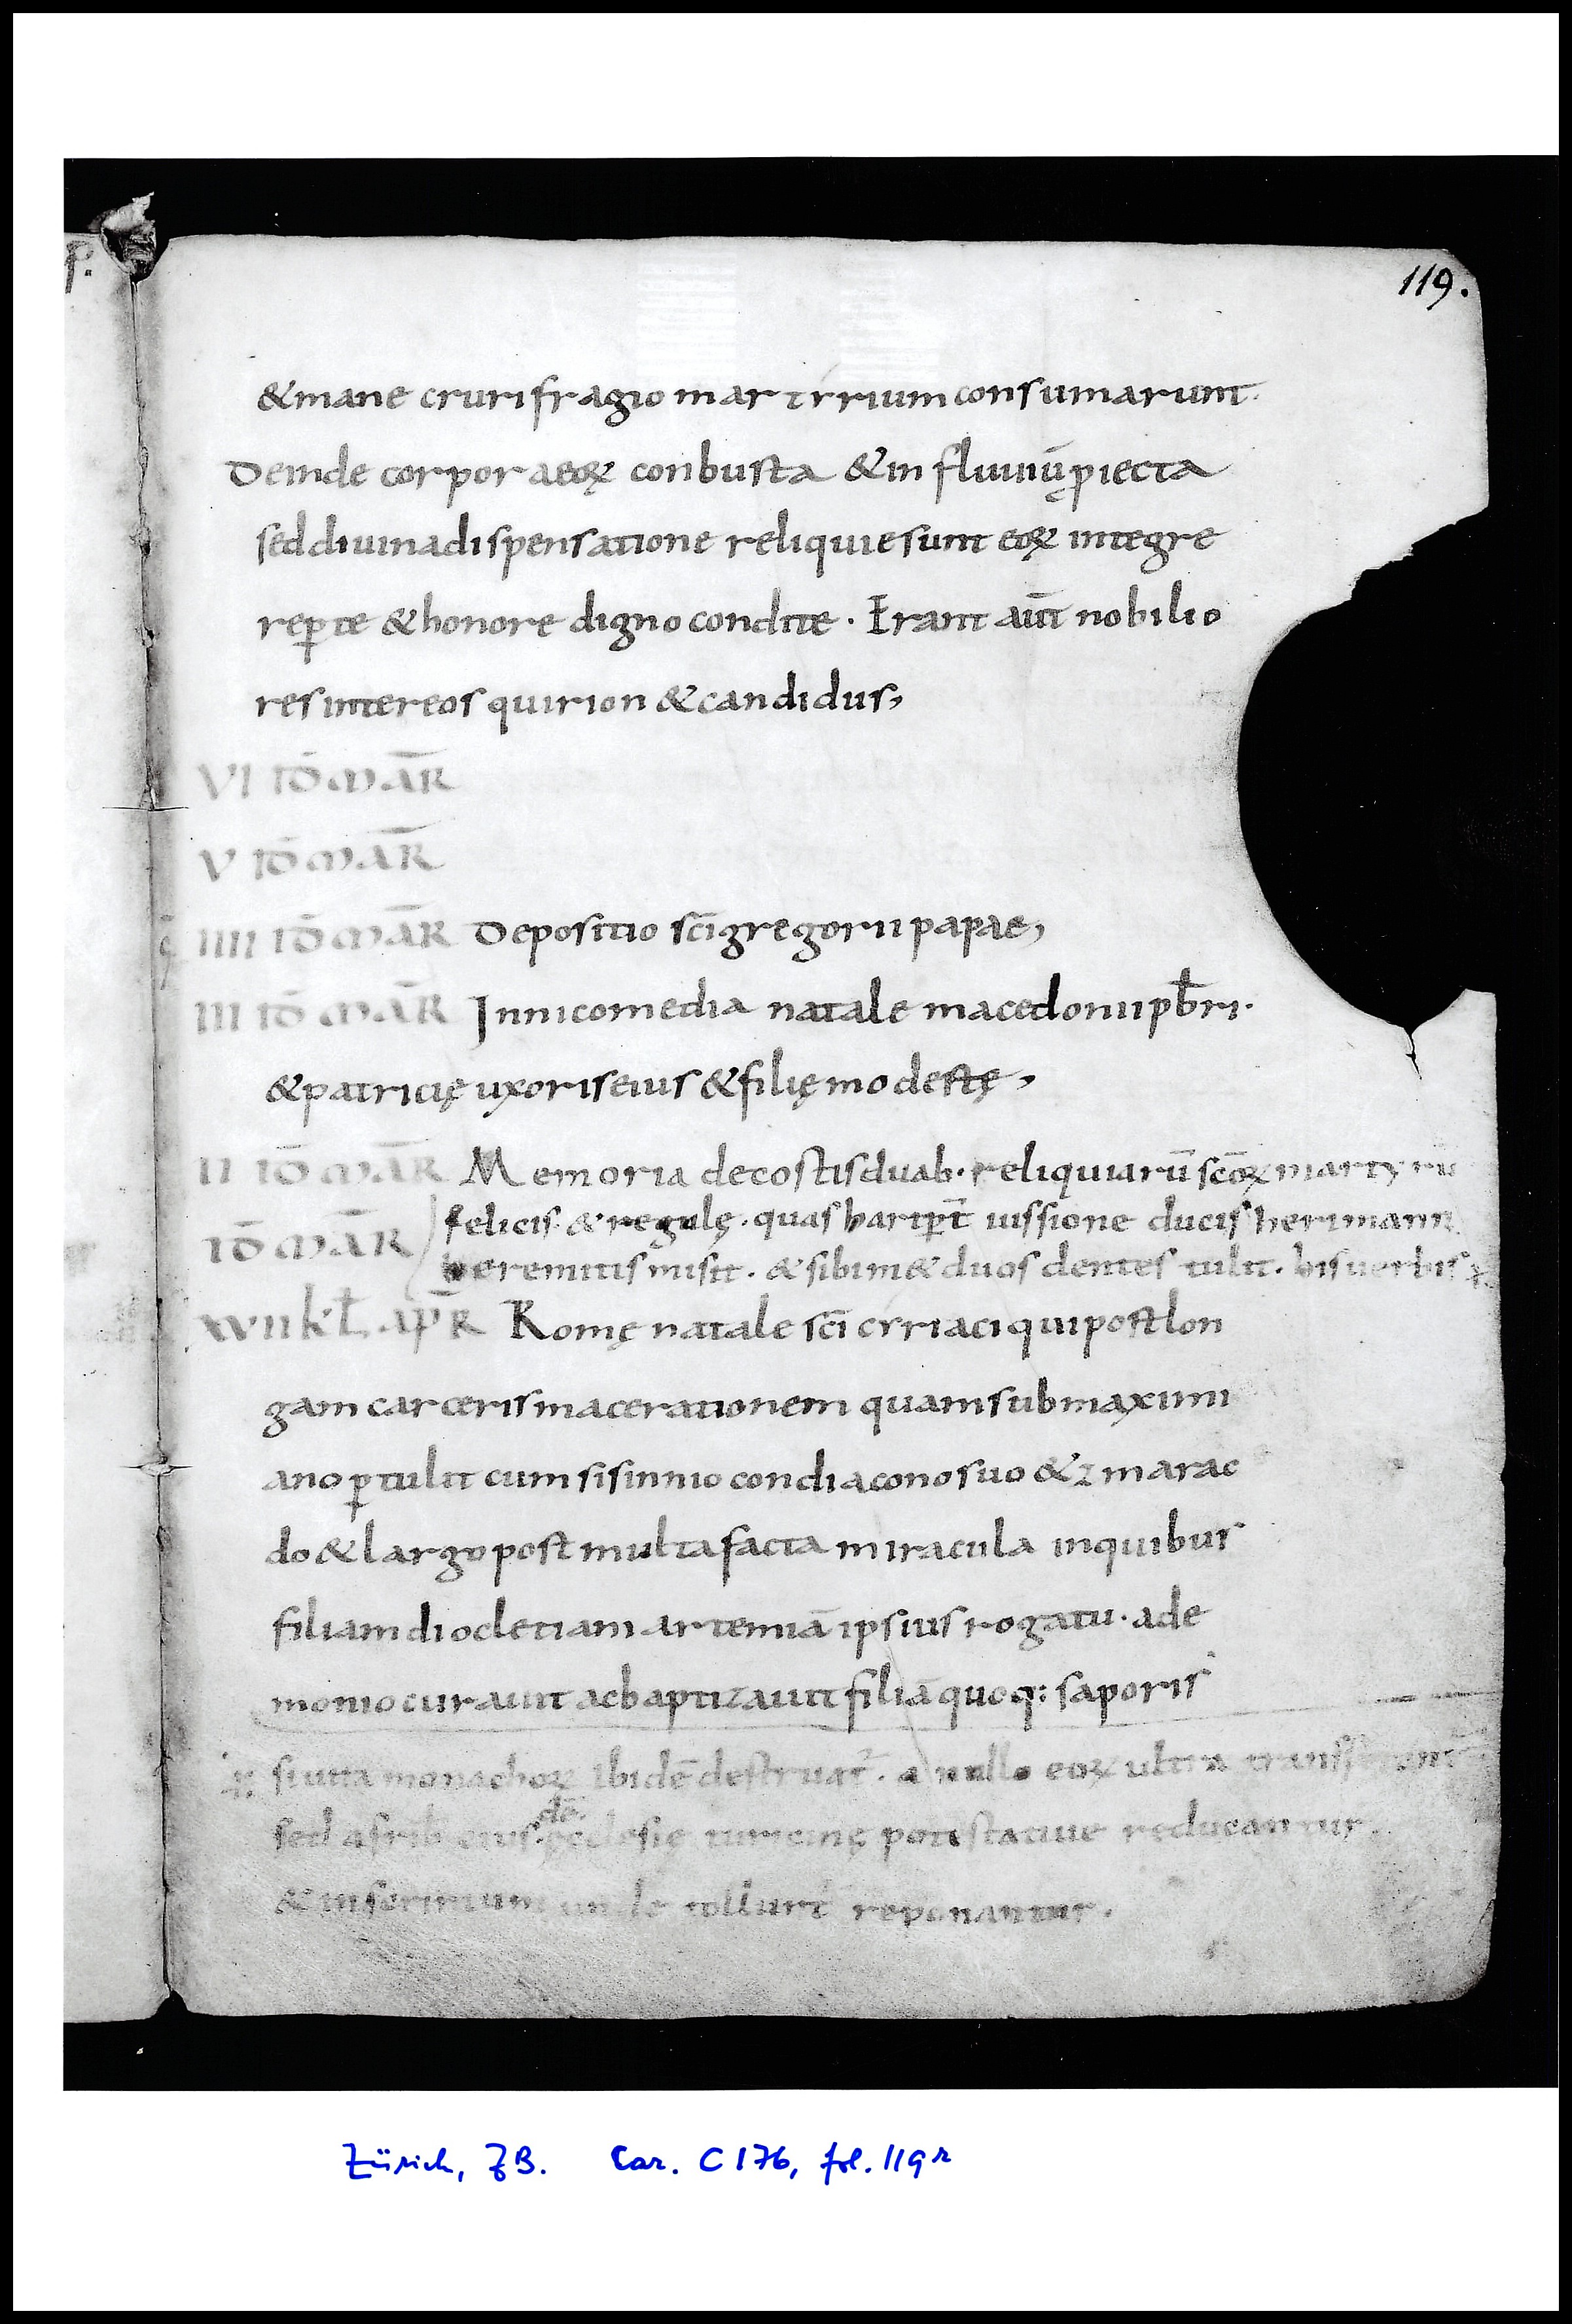 119.
& mane crurifragio martyrium consumarunt.
Deinde corpora eoꝝ conbusta & in fluuiū ꝓiecta
sed diuina dispensatione reliquie sunt eoꝝ integre
reꝑte & honore digno condite · Erant aut̄ nobilio
res inter eos quirion & candidus,
VI ID̄ MAR̄
V ID̄ MAR̄
IIII ID̄ MAR̄ Depositio sc̄i gregorii papae,
III ID̄ MAR̄ In nicomedia natale macedonii pb̄ri·
& patricię uxoris eius & filię modestę,
II ID̄ MAR̄ Memoria de costis duab· reliquiarū sc̄oꝝ martyrū
felicis & regulę · quas hartꝑt̄ iussione ducis herimanni
ID̄ MAR̄
heremitis misit · & sibim& duos dentes tulit · his uerbis
XVII kł APR̄ Romę natale sc̄i cyriaci qui post lon
gam carceris macerationem quam sub maximi
ano ꝑtulit cum sisinnio condiacono suo & zmarac
do & largo post multa facta miracula in quibus
filiam diocletiani artemiā ipsius rogatu · a de
monio curauit ac baptizauit filiā quoq: saporis
si uita monachoꝝ ibidē destruat᷑ · a nullo eoꝝ ultra
sed a eius dē ęcclesię turicinę potestatiue reducantur.
& in scrinium unde tollunt᷑ reponantur.
Zürich, ZB. Car. C 176, fol. 119r